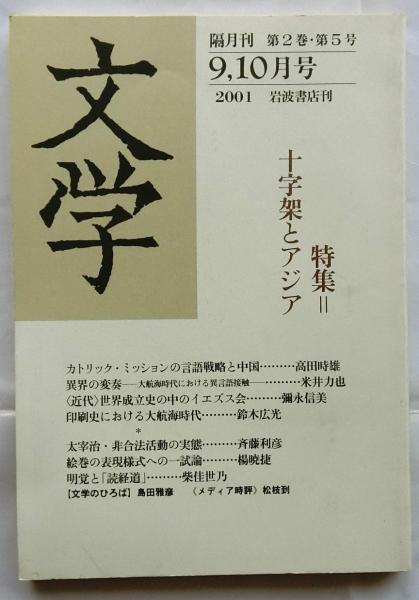 文学
隔月刊 第2巻・第5号
9,10月号
2001 岩波書店刊
特集=
十字架とアジア
カトリック・ミッションの言語戦略と中国………高田時雄
異界の変奏――大航海時代における異言語接触――………米井力也
〈近代〉世界成立史の中のイエズス会………彌永信美
印刷史における大航海時代………鈴木広光
*
太宰治・非合法活動の実態………斉藤利彦
絵巻の表現様式への一試論………楊暁捷
明覚と「読経道」………柴佳世乃
【文学のひろば】島田雅彦 〈メディア時評〉松枝到